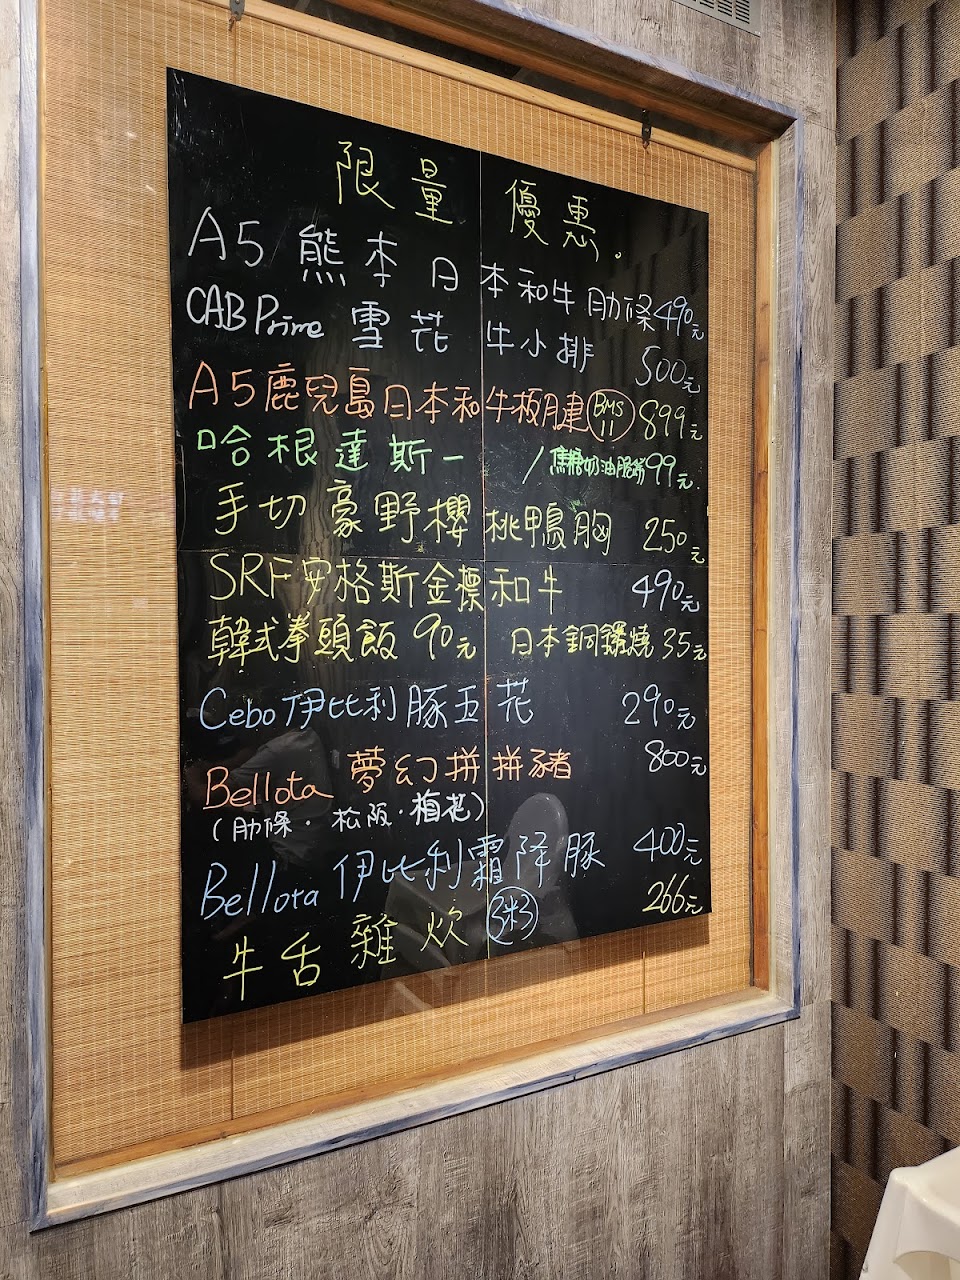 限量 優惠。
A5 熊本日本和牛肋條 490元
CAB Prime 雪花牛小排 500元
A5鹿兒島日本和牛板腱 BMS 11 899元
哈根達斯一 /焦糖奶油脆餅 99元.
手切豪野櫻桃鴨胸 250元
SRF安格斯金標和牛 490元
韓式拳頭飯 90元 日本銅鑼燒 35元
Cebo 伊比利豚五花 290元
Bellota 夢幻拼拼豬 800元
(肋條・松阪・梅花)
Bellota 伊比利霜降豚 400元
牛舌雜炊 粥 266元